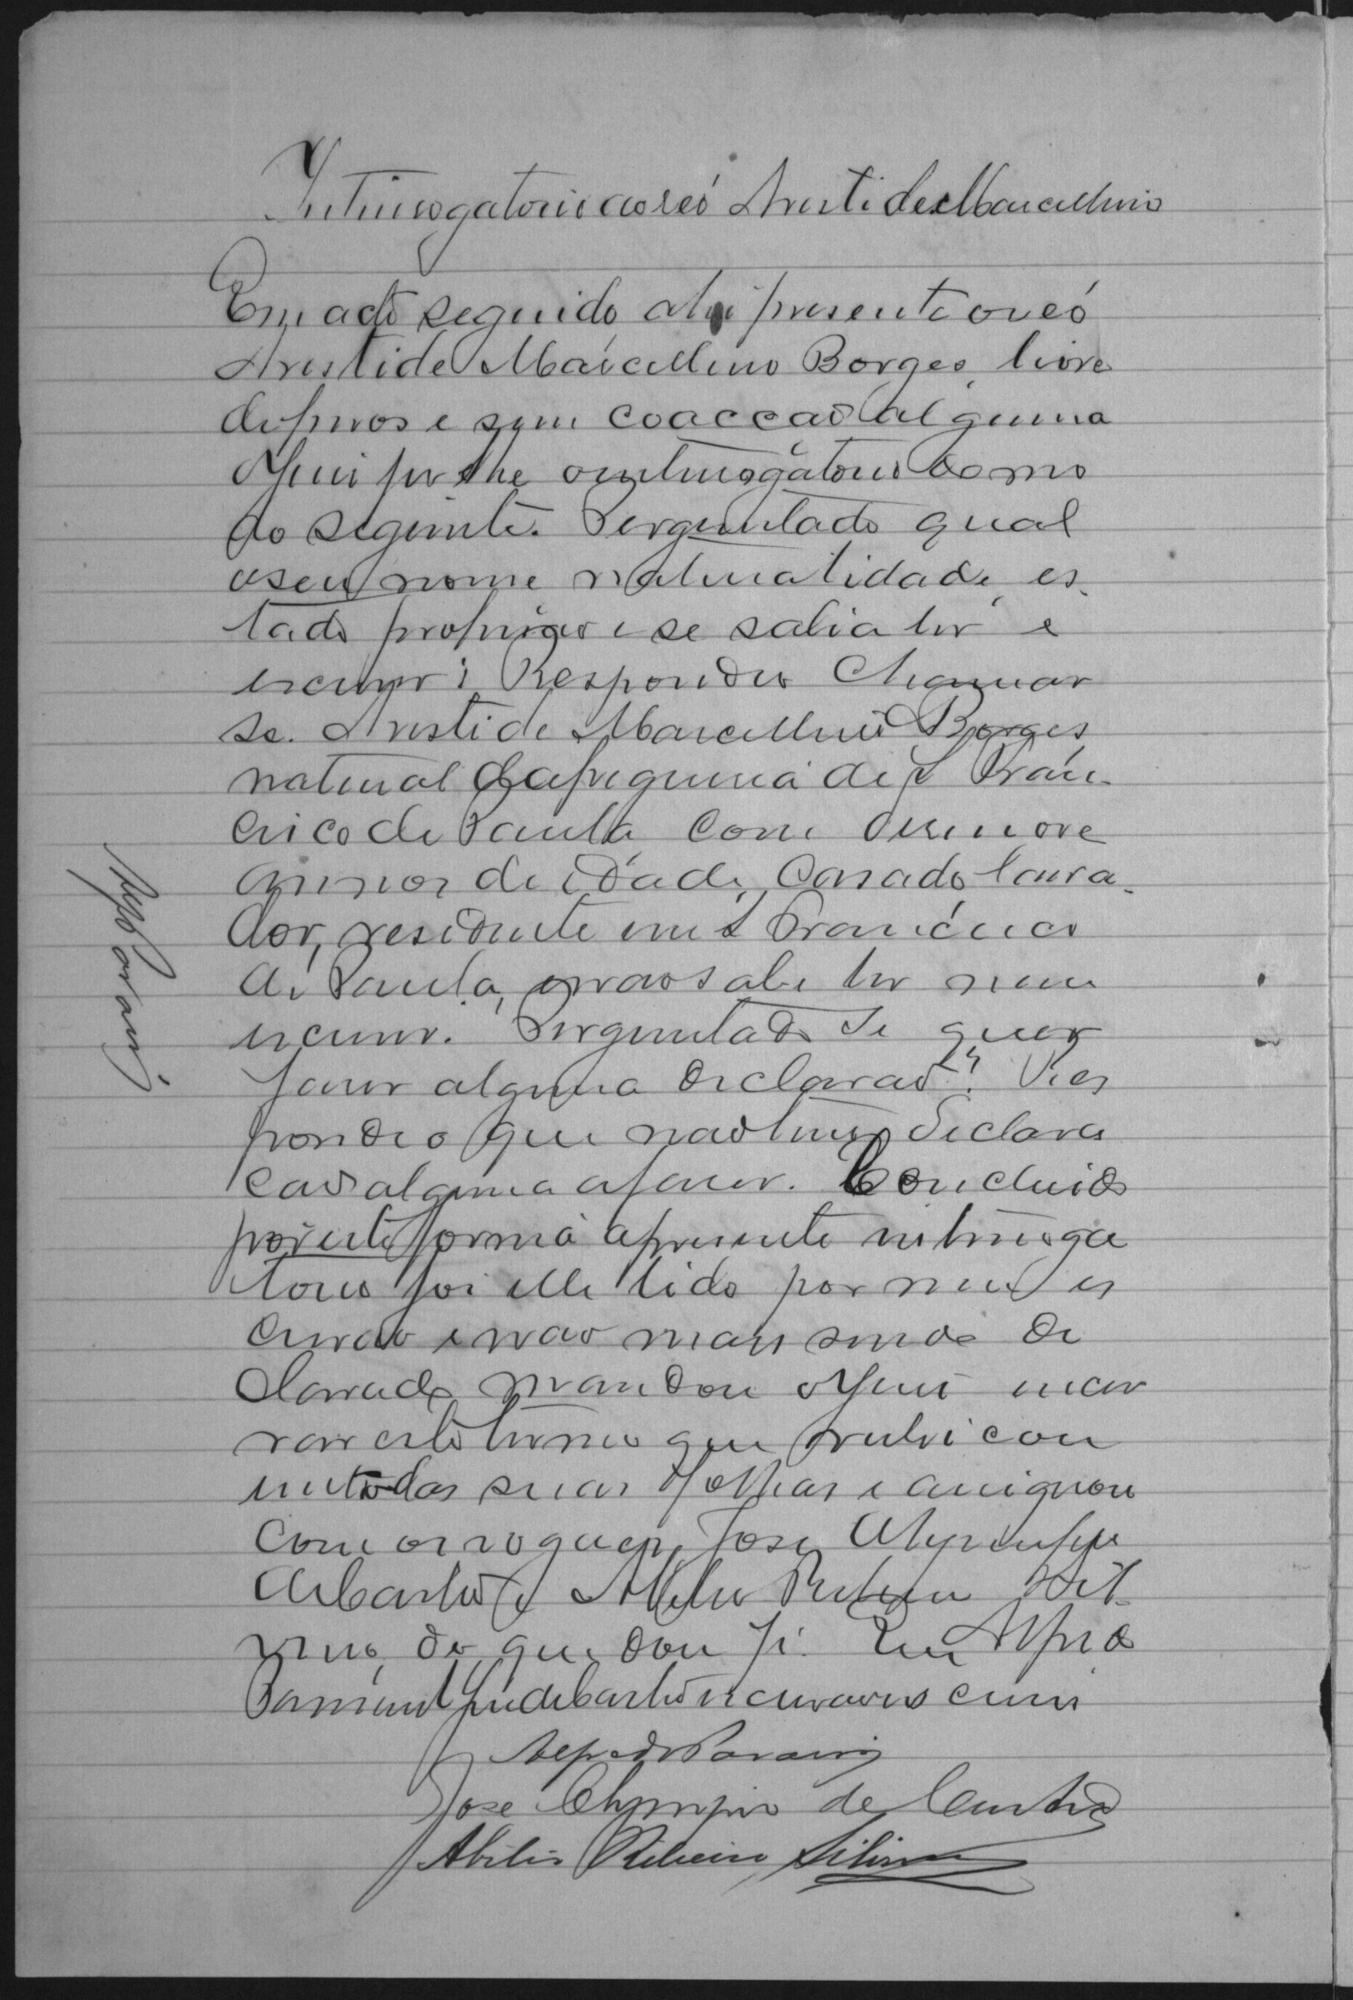 Interrogatorio ao réo Aristides Marcellino
Em acto seguido ahi presente o réo
Aristide Marcellino Borges, livre
de ferros e sem coacção alguma
o Juiz fes lhe o interrogatorio do mo
do seguinte. Perguntado qual
o seu nome naturalidade, es
tado profição e se sabia ler e
escrever? Respondeo Chamar
se. Aristide Marcellino Borges
natural da freguezia de S Fran
cisco de Paula com desenove
annos de idade, Casado lavra
dor, residente em S Francisco
de Paula, e não sabe ler nem
escrever. Perguntado se quer
fazer alguma declaração? Res
pondeo que não tinha declara
ção alguma a fazer. Concluido
por esta forma o presente interroga
torio foi elle lido por mim es
crivão e não mais sendo de
clarado mandou o Juiz encer
rar este termo que rubricou
em todas suas folhas e assignou
com os rogados, Jose Olympio
de Castro e Abilio Ribeiro Sil
do que dou fé. Eu Alfredo
de Castro escrivão escrevi
Alfredo
Jose Olympio de Castro
Abilio Ribeiro